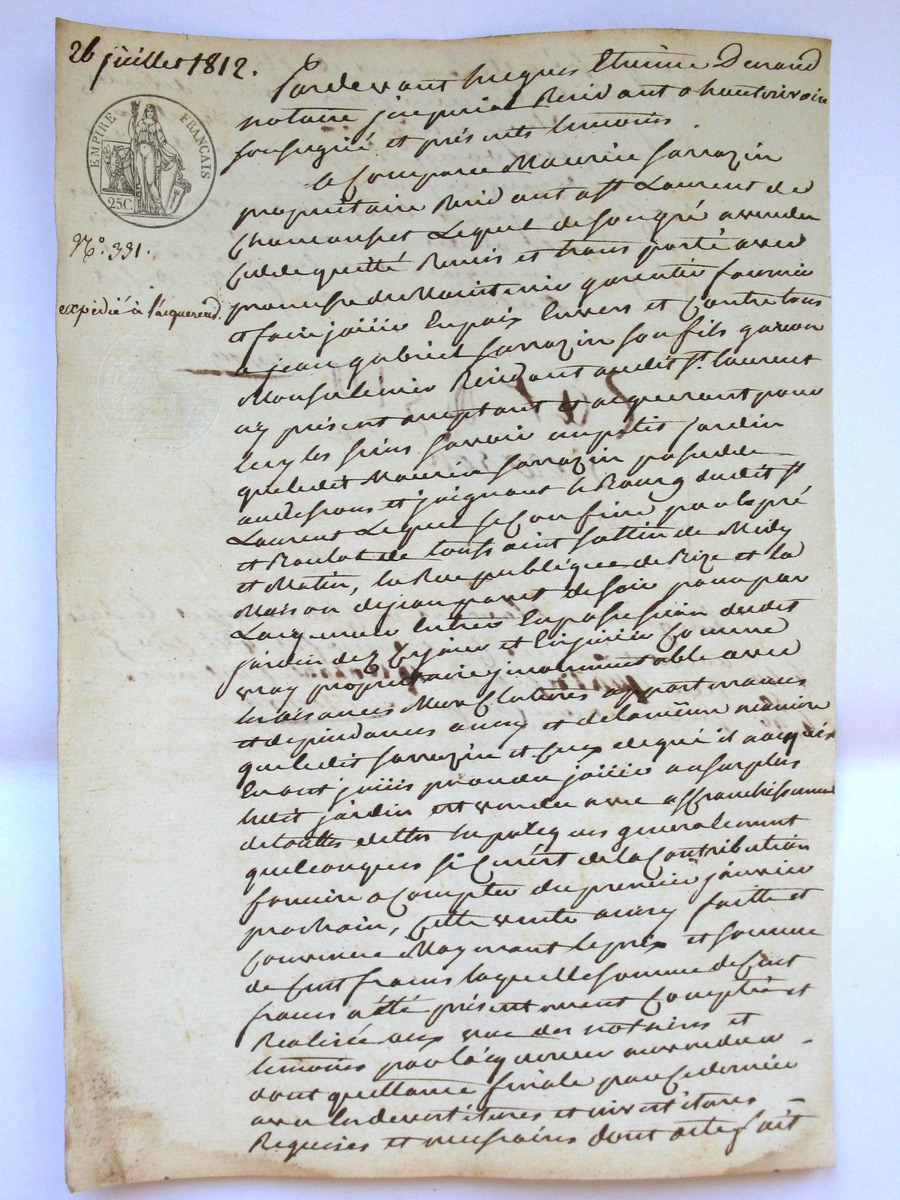 26 juillet 1812.
EMPIRE FRANÇAIS
25C
N.º 391.
expédié à l'acquereur.
Pardevant Jacques Etienne Durand
notaire imperial Residant a hauterivoire
soussigné et présents temoins
a Comparu Maurice Sarrazin
proprietaire Residant a St Laurent de
Chamousset Lequel de son gré a vendu
Cedde quitté Remis et transporté avec
promesse de Maintenir garentir fournir
et faire joüir En paix Envers et Contre tous
a jean gabriel Sarrazin son fils garcon
Residant audit St. Laurent
icy présent acceptant et acquerant pour
luy les siens Savoir un petit Jardin
que ledit Maurice Sarrazin possedde
au dessous et joignant le Bourg dudit St
Laurent Lequel se Confine par le pré
et de toussaint de Midy
et Matin, la Rue publique de Bize et la
Maison de jean de soir pour par
Lacquereur Entrer En possession dudit
jardin dez Ce jour et En joüir Comme
vray proprietaire incommutable avec
les aisances Murs Clotures appartenances
et dependances ainsy et de la même maniere
que ledit Sarrazin et Ceux de qui il a acquis
En ont joüis pu ou du joüir au surplus
ledit jardin est vendu avec affranchissement
de touttes dettes hipoteques generalement
quelconques si Ce n'est de la Contribution
fonciere a Compter du premier janvier
prochain, Cette vente ainsy faitte et
Convenue Moyenant le prix et somme
de Cent francs laquelle somme de Cent
francs a été présentement Comptée et
Realisée aux vue des notaires et
temoins par lacquereur au vendeur
dont quittance finale par Ce dernier
avec les devetitures et investitures
Requises et necessaires dont acte fait